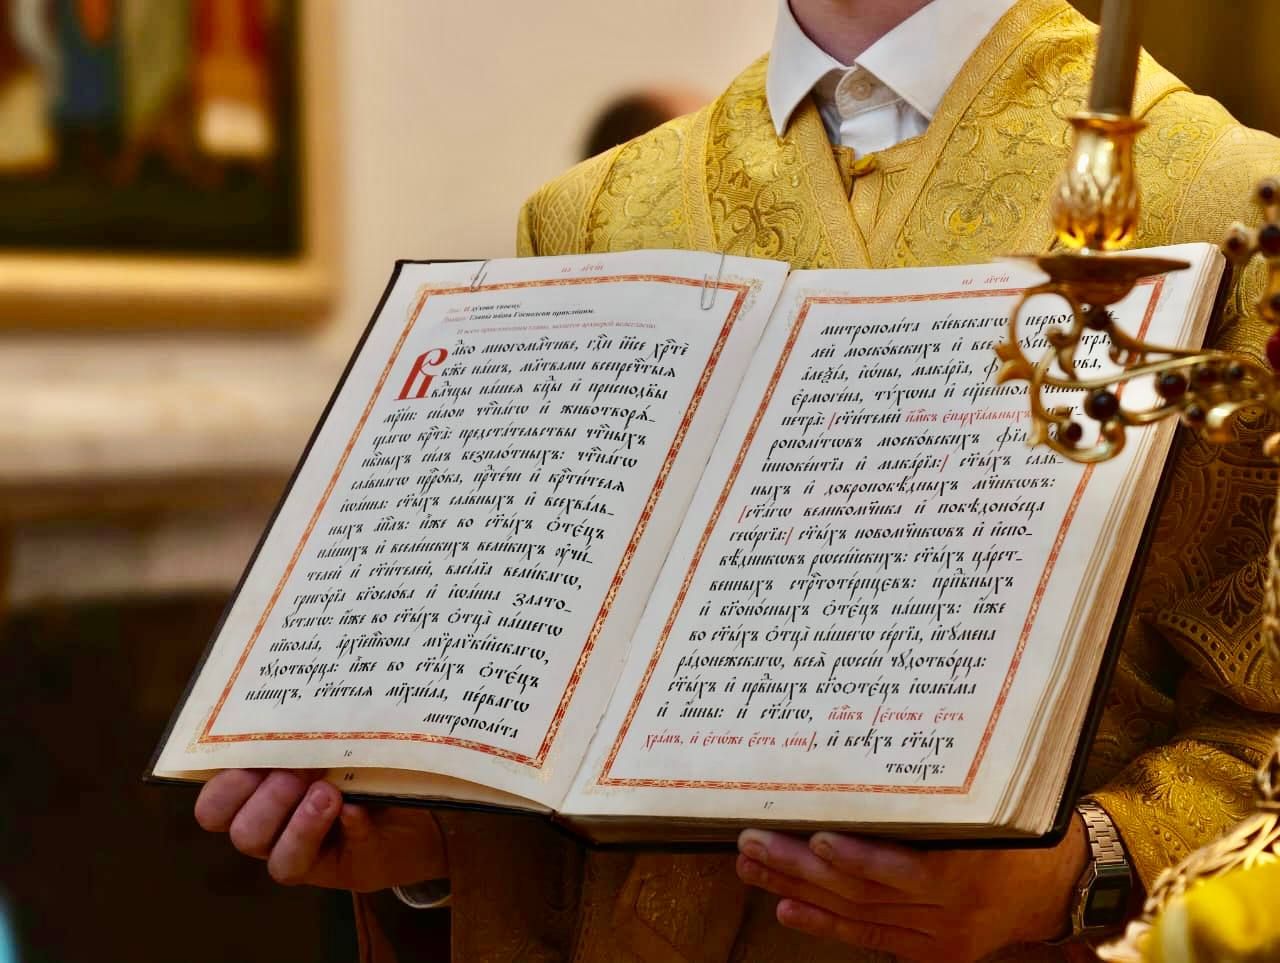 на литїи
Лик: И духови твоему.
Главы на́ша Го́сподеви прикло́ним.
И всем приклоньшим главы, молится архиерей велегласно:
Влⷣко многомⷭ҇тиве, гдⷭ҇и і҆и҃се хрⷭ҇тѐ
бж҃е на́шъ, мл҃твами всепречⷭ҇тыѧ
влⷣчцы на́шеѧ бцⷣы и҆ присноде҃вы
мр҃і́и: си́лою чтⷭ҇на́гѡ и҆ животворѧ́-
щагѡ крⷭ҇та̀: предста́тельствы чтⷭ҇ны́хъ
нбⷭ҇ныхъ си́лъ безпло́тныхъ: чтⷭ҇на́гѡ
сла́внагѡ прⷪ҇ро́ка, прⷣте́чи и҆ крⷭ҇ти́телѧ
і҆ѡа́нна: ст҃ы́хъ сла́вныхъ и҆ всехва́ль-
ныхъ а҆пⷭ҇лъ: и҆̀же во ст҃ы́хъ ѻ҆тє́цъ
на́шихъ и҆ вселе́нскихъ вели́кихъ ᲂу҆чи́-
телей и҆ ст҃и́телей, васі́лїа вели́кагѡ,
григо́рїа бг҃осло́ва и҆ і҆ѡа́нна злато-
ᲂу́стагѡ: и҆̀же во ст҃ы́хъ ѻ҆тца̀ на́шегѡ
нїко́лаа, а҆рхїепⷭ҇копа мѷрлѷкі́йскагѡ,
чꙋдотво́рца: и҆̀же во ст҃ы́хъ ѻ҆тє́цъ
на́шихъ, ст҃и́телѧ мїхаи́ла, пе́рвагѡ
митрополі́та
16
14
на литїи
митрополі́та кі́евскагѡ,
лей моско́вскихъ и҆ всеѧ̀
а҆леѯі́а, і҆ѡ́ны, мака́рїа,
є҆рмоге́на, ти́хѡна и҆ сщ҃енно
петра̀: ст҃и́телей и҆́мⷬ҇къ є҆парх҄їа́льныхъ
рополі́тѡвъ моско́вскихъ фїла
і҆нноке́нтїа и҆ мака́рїа: ст҃ы́хъ сла́в-
ныхъ и҆ добропобѣ́дныхъ мч҃никѡвъ:
ст҃а́гѡ великомч҃ника и҆ побѣдоно́сца
геѡ́ргїа: ст҃ы́хъ новомч҃никѡвъ и҆ и҆спо-
вѣ́дникѡвъ рѡссі́йскихъ: ст҃ы́хъ ца́рст-
венныхъ стрⷭ҇тоте́рпцєвъ: прпⷣбныхъ
и҆ бг҃оно́сныхъ ѻ҆тє́цъ на́шихъ: и҆̀же
во ст҃ы́хъ ѻ҆тца̀ на́шегѡ се́ргїа, и҆гꙋ́мена
ра́донежскагѡ, всеѧ̀ рѡссі́и чꙋдотво́рца:
ст҃ы́хъ и҆ првⷣныхъ бг҃оѻте́цъ і҆ѡакі́ма
и҆ а҆́нны: и҆ ст҃а́гѡ, и҆́мⷬ҇къ є҆гѡ́же є҆́сть
хра́мъ, и҆ є҆гѡ́же є҆́сть де́нь, и҆ всѣ́хъ ст҃ы́хъ
твои́хъ:
17